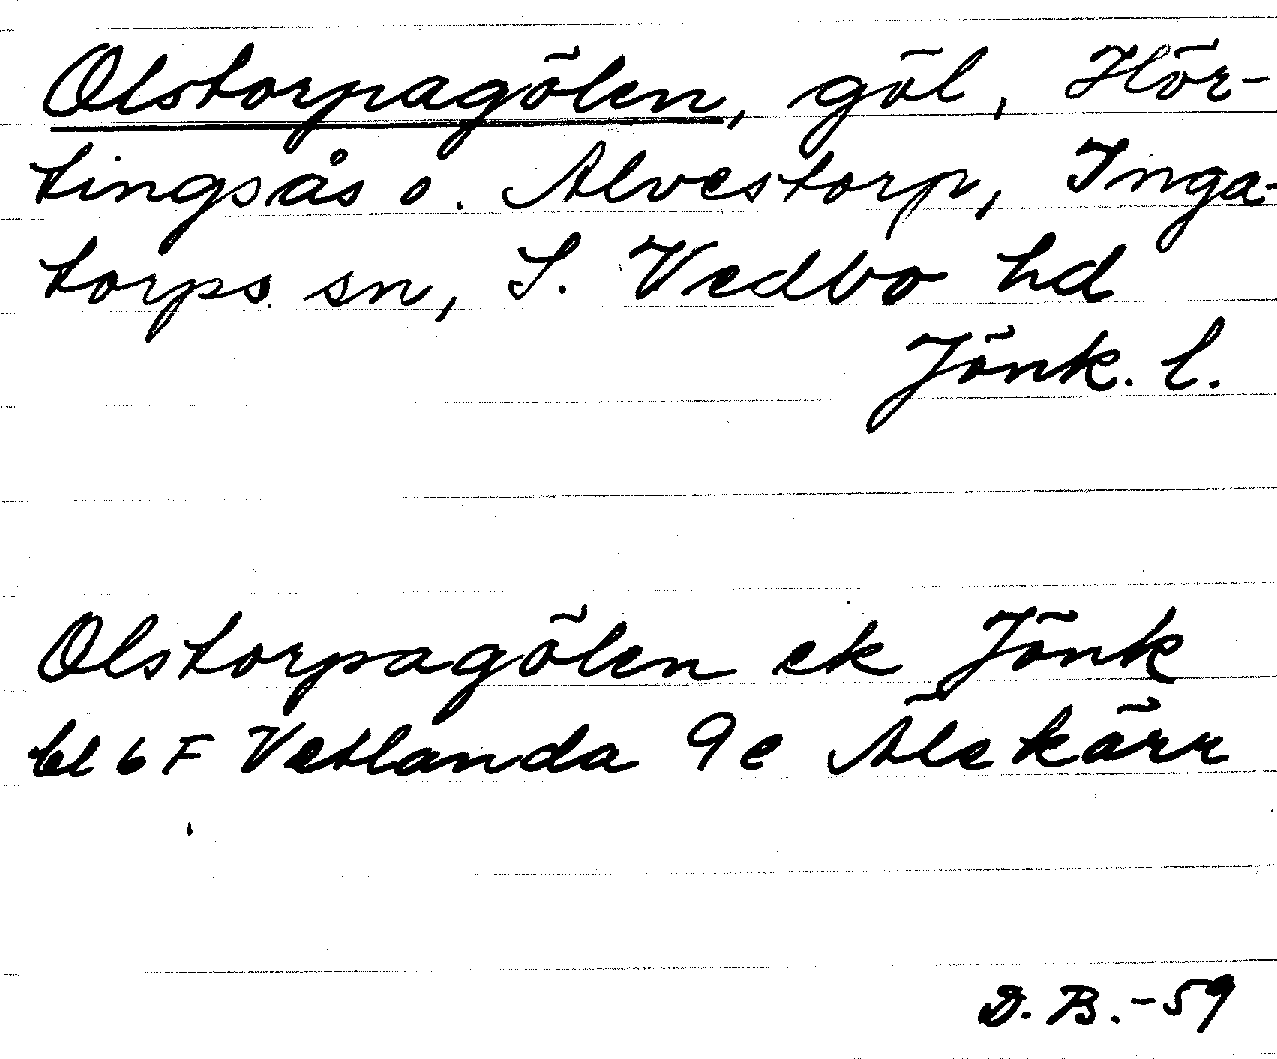 Olstorpagölen, göl, Hör-
tingsås o. Alvestorp, Inga-
torps sn, S. Vedbo hd
Jönk. l.
Olstorpagölen ek Jönk
bl 6 F Vetlanda 9e Älekärr
D. B. -59